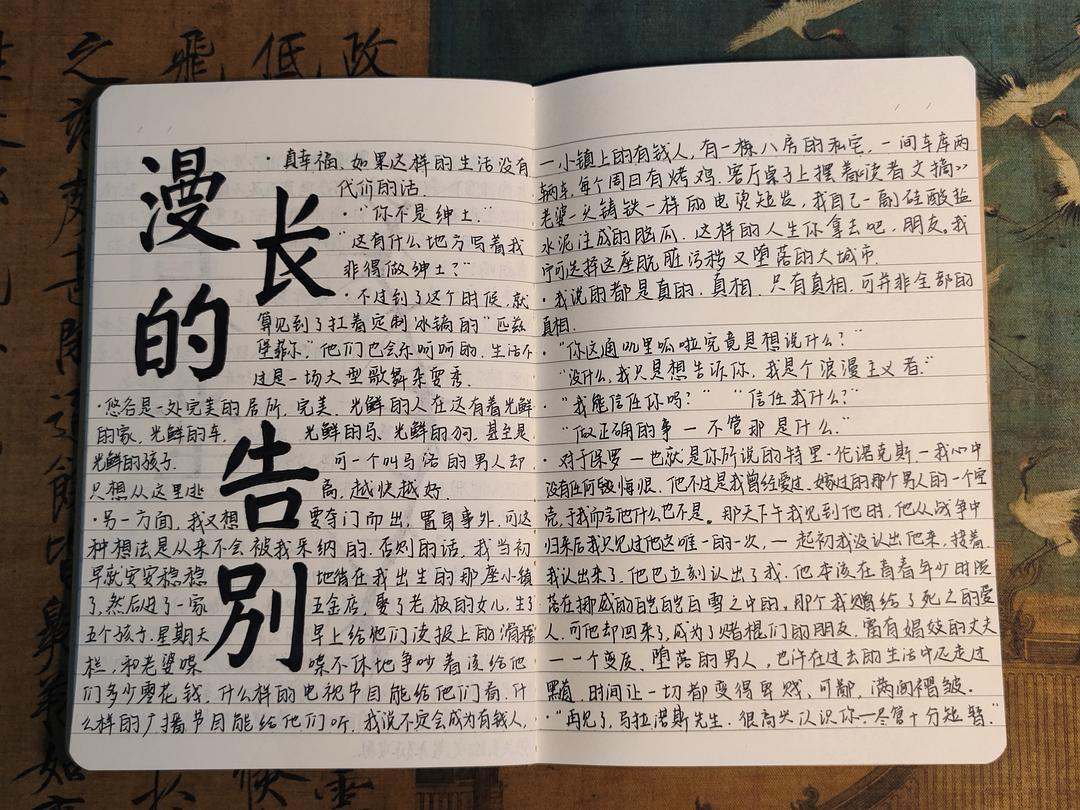 漫长的告别
·真幸福、如果这样的生活没有
代价的话.
·“你不是绅士.”
“这有什么地方写着我
非得做绅士?”
·不过到了这个时候、就
算见到了扛着定制冰镐的“匹兹
堡菲尔”他们也会乐呵呵的.生活不
过是一场大型歌舞杂耍秀.
·悠谷是一处完美的居所.完美.光鲜的人在这有着光鲜
的家,光鲜的车,光鲜的马、光鲜的狗,甚至是
光鲜的孩子.可一个叫马洛的男人却
只想从这里逃离,越快越好.
·另一方面,我又想要夺门而出,置身事外,可这
种想法是从来不会被我采纳的.否则的话,我当初
早就安安稳稳地待在我出生的那座小镇
了,然后进了一家五金店,娶了老板的女儿,生了
五个孩子.星期天早上给他们读报上的滑稽
栏,和老婆喋喋不休地争吵着该给他
们多少零花钱,什么样的电视节目能给他们看.什
么样的广播节目能给他们听.我说不定会成为有钱人,
一小镇上的有钱人,有一栋八房的私宅,一间车库两
辆车,每个周日有烤鸡.客厅桌子上摆着《读者文摘》
老婆一头铸铁一样的电烫短发,我自己一副硅酸盐
水泥注成的脑瓜.这样的人生你拿去吧,朋友.我
宁可选择这座肮脏污秽又堕落的大城市.
·我说的都是真的.真相.只有真相.可并非全部的
真相.
·“你这通叽里呱啦究竟是想说什么?”
“没什么,我只是想告诉你,我是个浪漫主义者.”
·“我能信任你吗?” “信任我什么?”
“做正确的事一不管那是什么.”
·对于保罗一也就是你所说的特里·伦诺克斯一我心中
没有任何毁悔恨.他不过是我曾经爱过,嫁过的那个男人的一个空
壳,于我而言他什么也不是。那天下午我见到他时,他从战争中
归来后我只见过他这唯一的一次,一起初我没认出他来.接着
我认出来了,他也立刻认出了我.他本该在青春年少时陨
落在挪威的皑皑白雪之中的,那个我赠给了死亡的爱
人.可他却回来了,成为了赌棍们的朋友.富有娼妓的丈夫
一一个变质、堕落的男人,也许在过去的生活中还走过
黑道.时间让一切都变得卑贱、可鄙,满面褶皱.
·“再见了,马拉诺斯先生.很高兴认识你一尽管十分短暂.”